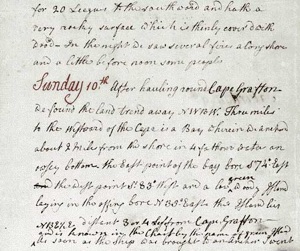 for 20 Leagues to the southward and hath a
very rocky surface which is thinly cover'd with
Wood. In the night we saw several fires along shore
and a little before noon some people
Sunday 10th After hauling round Cape Grafton
we found the land trend away NWBW. Three miles
to the Westward of the Cape is a Bay wherein we anchor'd
about 2 miles from the shore in 4 fathom water an
oosey bottom. the East point of the bay bore S 74° East
the West point S. 83° West and a low green Island
laying in the offing bore N 35° East. this Island lies
NBE½E distant 3 or 4 lgs from Cape Grafton
and is known in the Chart by the name of green Island
As soon as the Ship was brought to an anchor I went